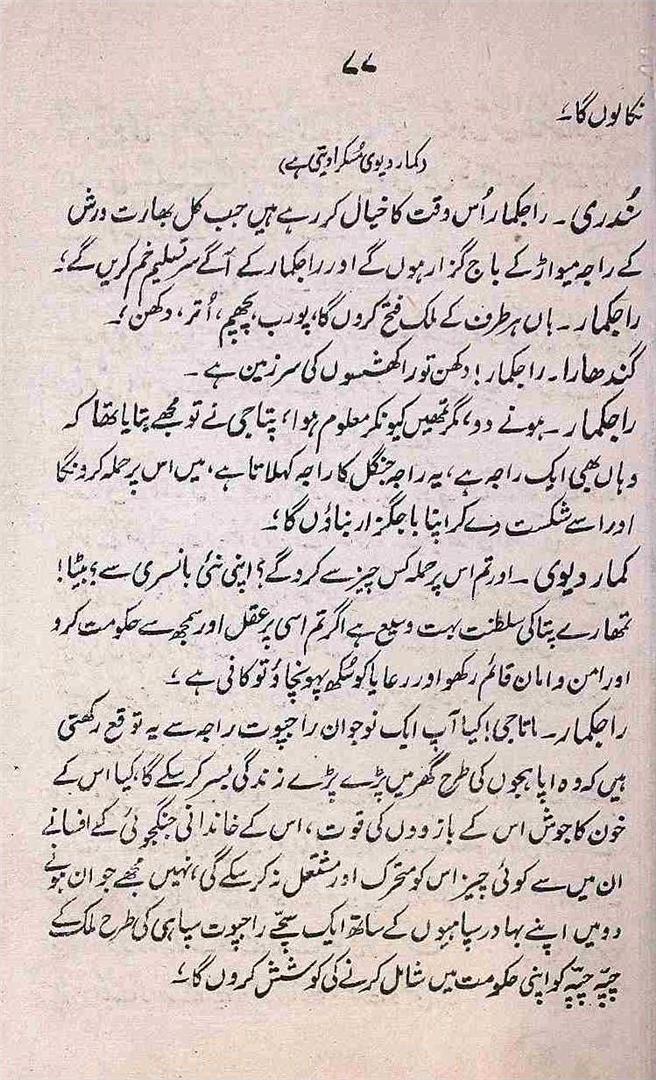 ۷۷
نکالوں گا۔
(کمار دیوی مُسکرا دیتی ہے)
سُندری۔ راجکمار اُس وقت کا خیال کر رہے ہیں جب کل بھارت ورش
کے راجہ میواڑ کے باج گزار ہوں گے اور راجکمار کے آگے سر تسلیم خم کریں گے۔
راجکمار۔ ہاں ہر طرف کے ملک فتح کروں گا، پورب، پچھم، اُتر، دکھن۔
گندھارا۔ راجکمار! دکھن تو راکھشسوں کی سرزمین ہے۔
راجکمار۔ ہونے دو، مگر تمھیں کیونکر معلوم ہوا، پتاجی نے تو مجھے بتایا تھا کہ
وہاں بھی ایک راجہ ہے، یہ راجہ جنگل کا راجہ کہلاتا ہے، میں اس پر حملہ کرونگا
اور اسے شکست دے کر اپنا باجگزار بناؤں گا۔
کمار دیوی۔ اور تم اس پر حملہ کس چیز سے کرو گے؟ اپنی نئی بانسری سے؟ بیٹا!
تمھارے پتا کی سلطنت بہت وسیع ہے اگر تم اسی پر عقل اور سمجھ سے حکومت کرو
اور امن و امان قائم رکھو اور رعایا کو سُکھ پہونچاؤ تو کافی ہے۔
راجکمار۔ ماتاجی! کیا آپ ایک نوجوان راجپوت راجہ سے یہ توقع رکھتی
ہیں کہ وہ اپاہجوں کی طرح گھر میں پڑے پڑے زندگی بسر کر سکے گا، کیا اس کے
خون کا جوش اس کے بازووں کی قوت، اس کے خاندانی جنگجوئی کے افسانے
ان میں سے کوئی چیز اس کو متحرک اور مشتعل نہ کر سکے گی، نہیں مجھے جوان ہونے
دو میں اپنے بہادر سپاہیوں کے ساتھ ایک سچے راجپوت سپاہی کی طرح ملک کے
چپّہ چپّہ کو اپنی حکومت میں شامل کرنے کی کوشش کروں گا۔